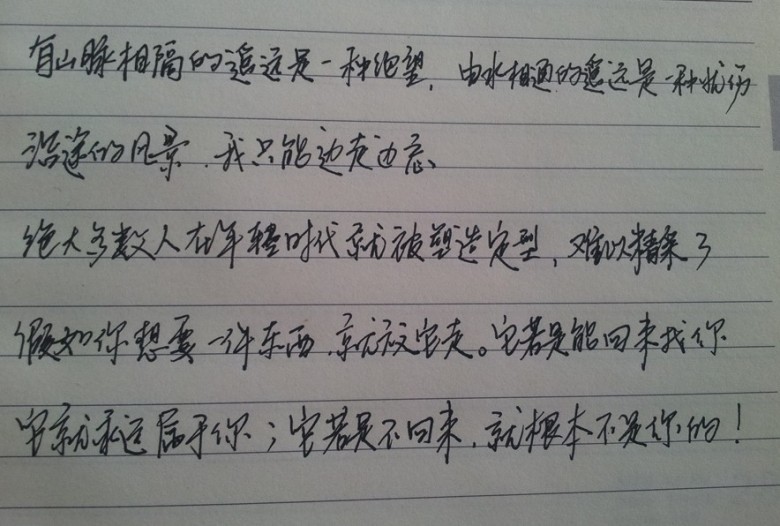 有山脉相隔的遥远是一种绝望，由水相通的遥远是一种忧伤
沿途的风景，我只能边走边忘
绝大多数人在年轻时代就被塑造定型，难以精采了
假如你想要一件东西，就放它走。它若是能回来找你
它就永远属于你；它若是不回来，就根本不是你的！